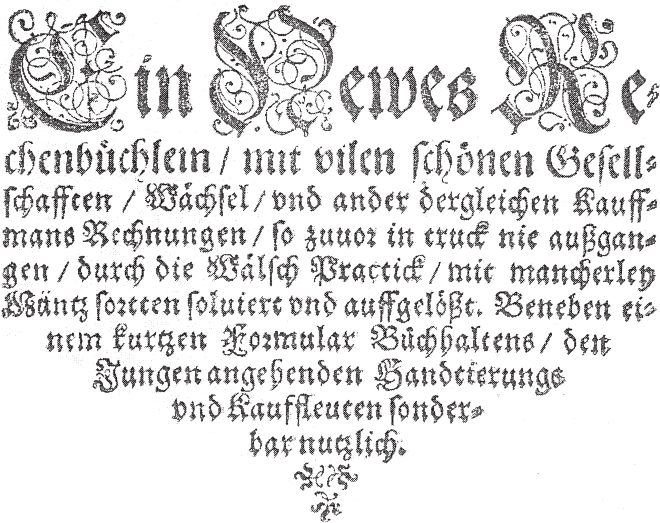 Ein Newes Re⸗
chenbüchlein / mit vilen schönen Gesell⸗
schafften / Wächsel / vnd ander dergleichen Kauff⸗
mans Rechnungen / so zuuor in truck nie außgan⸗
gen / durch die Wälsch Practick / mit mancherley
Müntz sortten soluiert vnd auffgelößt. Beneben ei⸗
nem kurtzen Formular Büchhaltens / den
Jungen angehenden Handtierungs
vnd Kauffleuten sonder⸗
bar nutzlich.